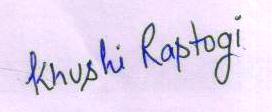 Khushi Raptogi